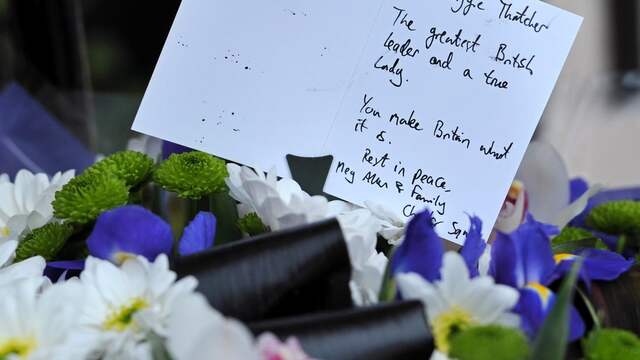 Thatcher
The greatest British
leader and a true
Lady.
You make Britain what
it is.
Rest in peace,
Meg Allen & Family